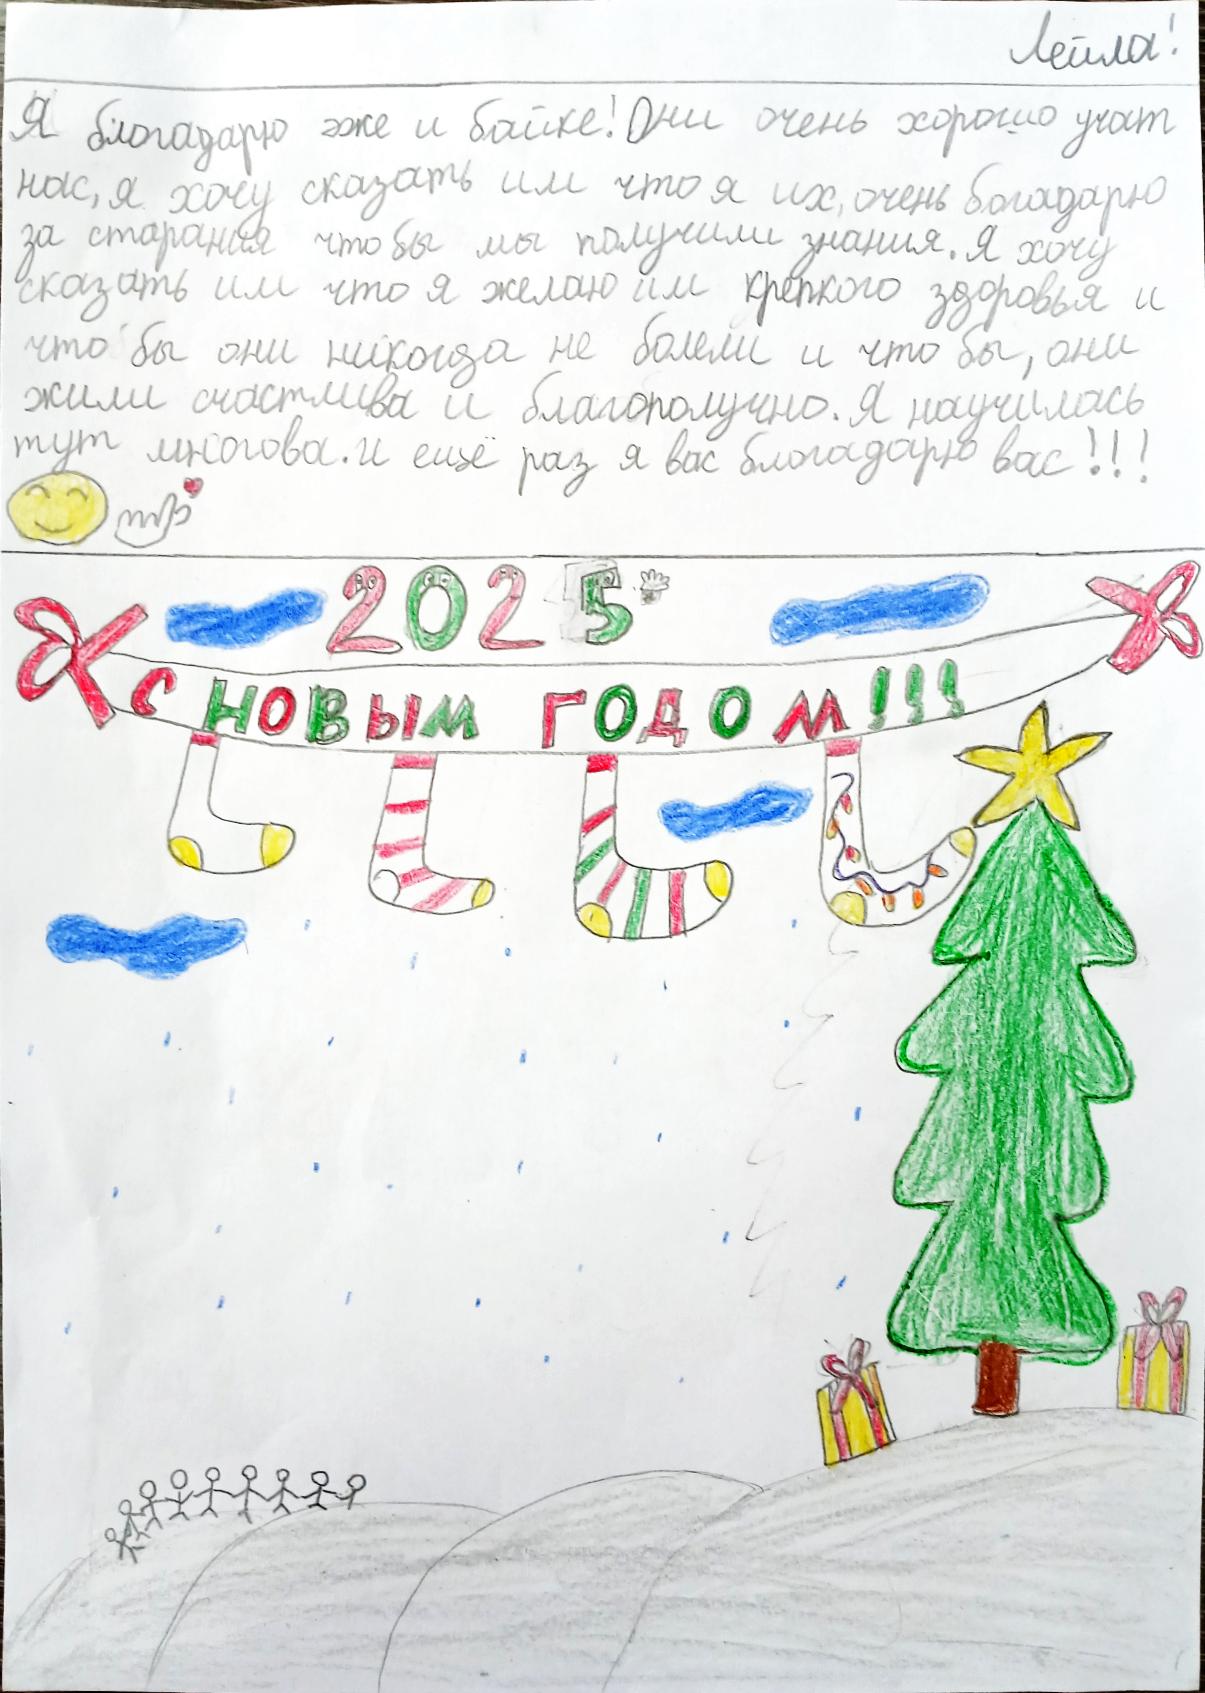 Лейла!
Я блогадарю эже и байке! Они очень хорошо учат
нас, я хочу сказать им что я их, очень богадарю
за старания что бы мы получили знания. Я хочу
сказать им что я желаю им крепкого здоровья и
что бы они никогда не болели и что бы, они
жили счастлива и благополучно. Я научилась
тут многова. и ещё раз я вас блогадарю вас!!!
2025
С НОВЫМ ГОДОМ!!!